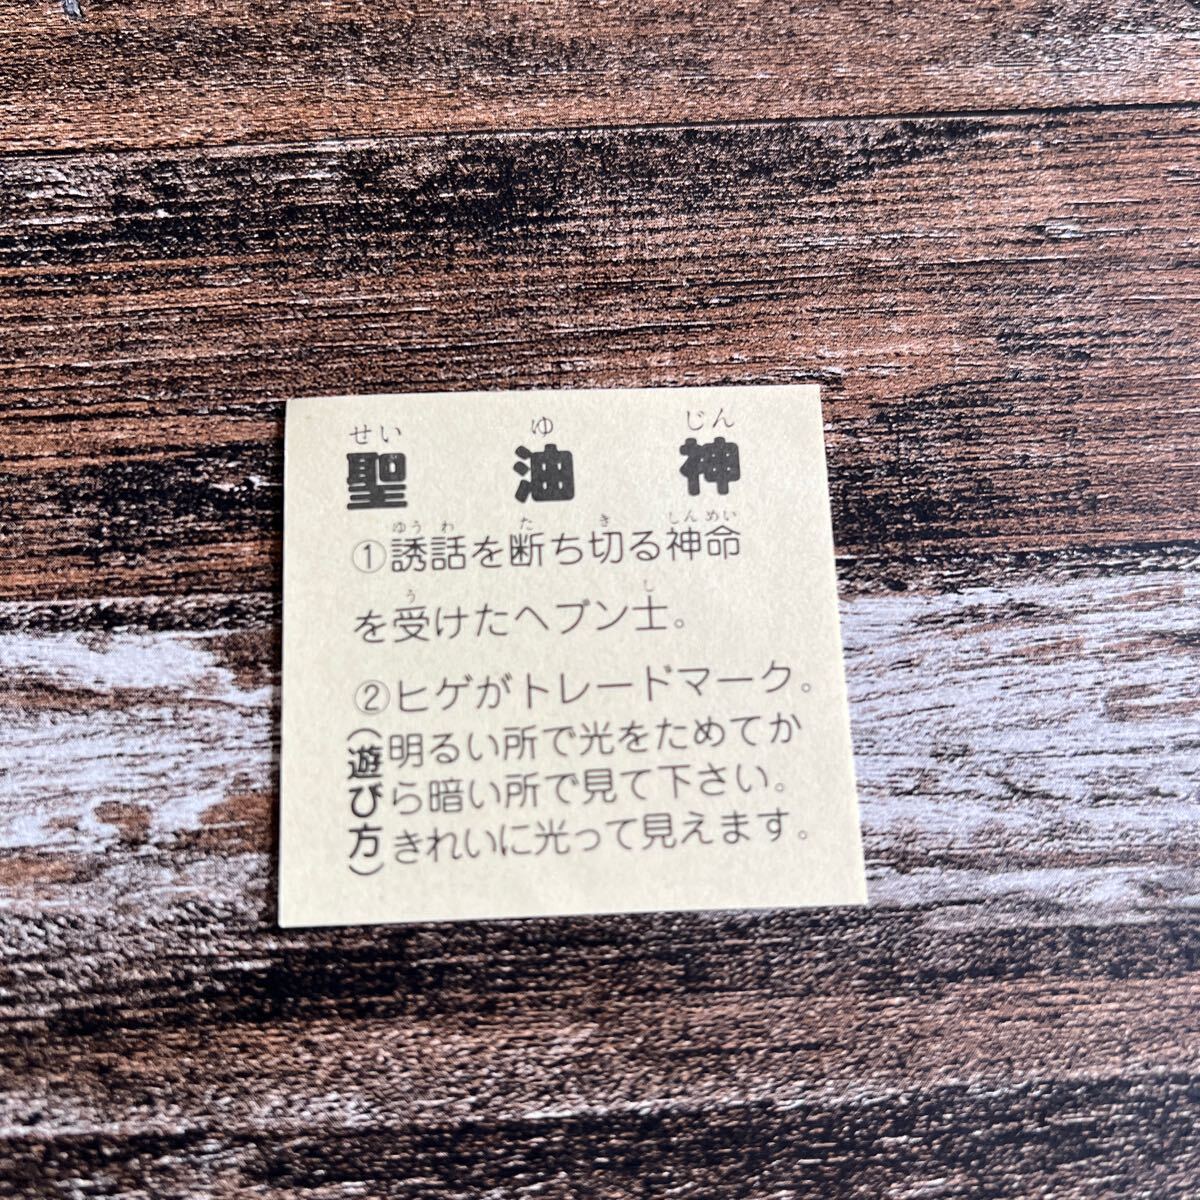 せい ゆ じん
聖油神
ゆう わ た き しん めい
①誘話を断ち切る神命
う し
を受けたヘブン士。
②ヒゲがトレードマーク。
(遊び方)
明るい所で光をためてか
ら暗い所で見て下さい。
きれいに光って見えます。